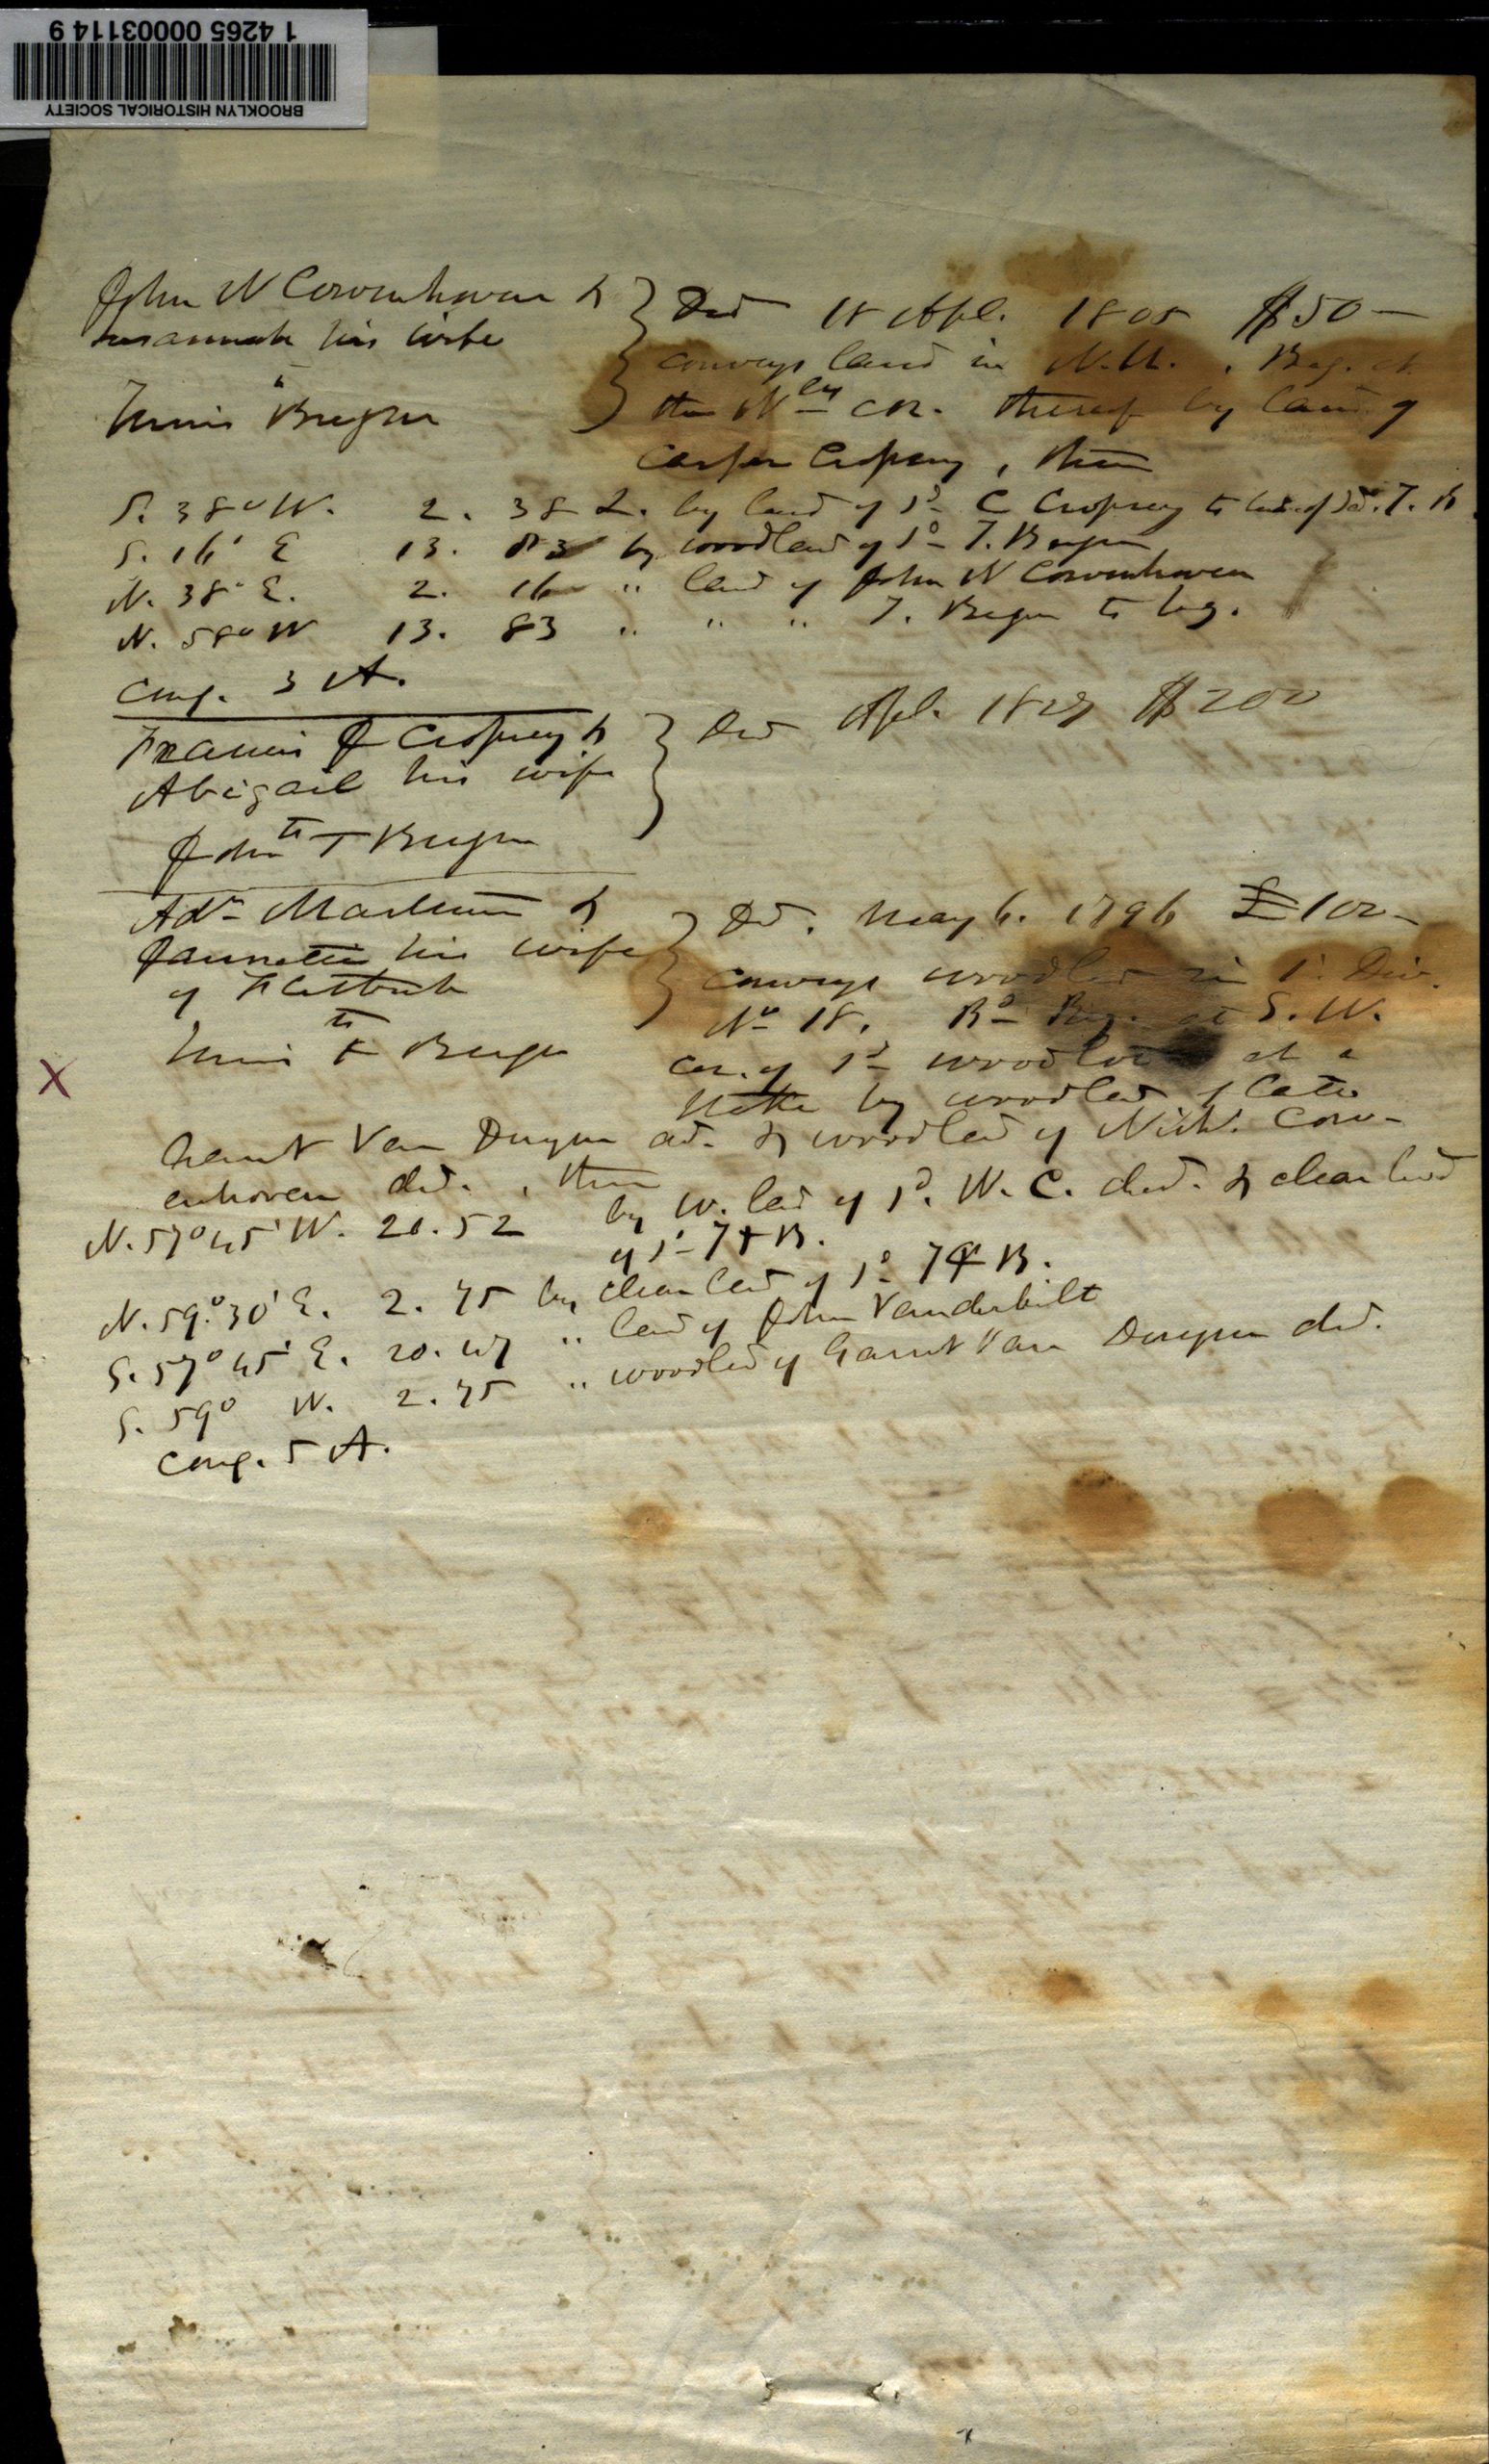 1 4265 00003114 9
BROOKLYN HISTORICAL SOCIETY
John N Covenhoven &
Susannah his wife
to
Tunis Bergen
Ded 18 Apl. 1805 $50 —
conveys land in N. U. . Beg. at
the Nly cor. thereof by land of
Casper Cropsey, then
S. 38° W. 2. 38 L. by land of sd C Cropsey to land of sd. T. B
S. 16' E 13. 83 by woodland of sd T. Bergen
N. 38° E. 2. 16 " land of John N Covenhoven
N. 58° W 13. 83 " " " T. Bergen to beg.
cong. 3 A.
Francis J Cropsey &
Abigail his wife
to
John T Bergen
Ded Apl. 1827 $200
Adn Martense &
Jannetie his wife
of Flatbush
to
Tunis F Bergen
Dd. May 6. 1796 £100 –
conveys woodland in 1. Div.
No 18. Bd Beg. at S. W.
cor. of sd woodlot at a
stake by woodland of late
Garrit Van Duyn ad. & woodland of Nichs. Cow-
enhoven decd. , then
N. 57° 45' W. 20. 52 by w. land of sd. N. C. decd. & clear land
of sd T F B.
N. 59° 30' E. 2. 75 by clear land of sd T F B.
S. 57° 45' E. 20. 47 " land of John Vanderbilt
S. 59° W. 2. 75 " woodland of Garrit Van Duyn decd.
cong. 5 A.
X